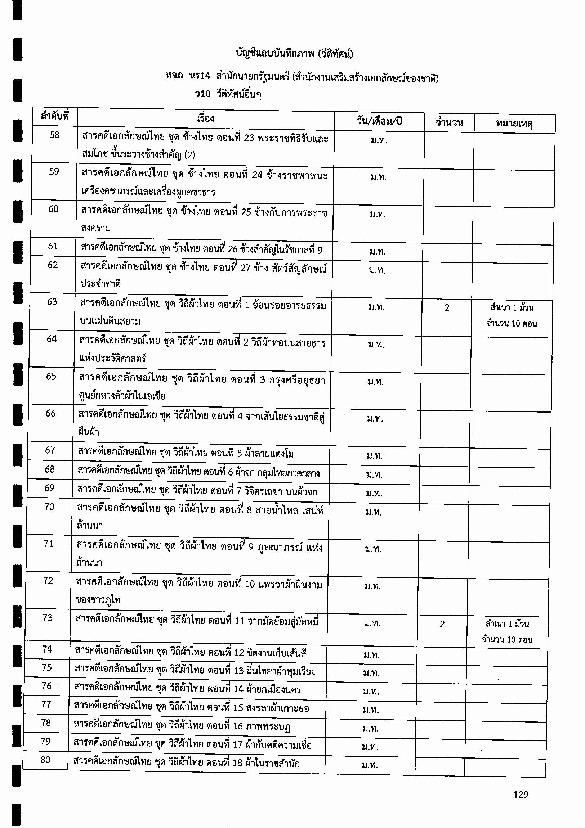 บัญชีแถบบันทึกภาพ (วีดิทัศน์)
หจภ หร14 สำนักนายกรัฐมนตรี (สำนักงานเสริมสร้างเอกลักษณ์ของชาติ)
ว10 วีดิทัศน์อื่นๆ
ลำดับที่ เรื่อง วัน/เดือน/ปี จำนวน หมายเหตุ
58 สารคดีเอกลักษณ์ไทย ชุด ช้างไทย ตอนที่ 23 พระราชพิธีรับและ ม.ท.
สมโภช ขึ้นระวางช้างสำคัญ (2)
59 สารคดีเอกลักษณ์ไทย ชุด ช้างไทย ตอนที่ 24 ช้างราชพาหนะ ม.ท.
เครื่องคชาภรณ์และเครื่องผูกคชาธาร
60 สารคดีเอกลักษณ์ไทย ชุด ช้างไทย ตอนที่ 25 ช้างกับการพระราช ม.ท.
สงคราม
61 สารคดีเอกลักษณ์ไทย ชุด ช้างไทย ตอนที่ 26 ช้างสำคัญในรัชกาลที่ 9 ม.ท.
62 สารคดีเอกลักษณ์ไทย ชุด ช้างไทย ตอนที่ 27 ช้าง สัตว์สัญลักษณ์ ม.ท.
ประจำชาติ
63 สารคดีเอกลักษณ์ไทย ชุด วิถีผ้าไทย ตอนที่ 1 ย้อนรอยอารยธรรม ม.ท. 2 สำเนา 1 ม้วน
บนแผ่นดินสยาม จำนวน 10 ตอน
64 สารคดีเอกลักษณ์ไทย ชุด วิถีผ้าไทย ตอนที่ 2 วิถีผ้าทอบนสายธาร ม.ท.
แห่งประวัติศาสตร์
65 สารคดีเอกลักษณ์ไทย ชุด วิถีผ้าไทย ตอนที่ 3 กรุงศรีอยุธยา ม.ท.
ศูนย์กลางค้าผ้าในเอเชีย
66 สารคดีเอกลักษณ์ไทย ชุด วิถีผ้าไทย ตอนที่ 4 จากเส้นใยธรรมชาติสู่ ม.ท.
ผืนผ้า
67 สารคดีเอกลักษณ์ไทย ชุด วิถีผ้าไทย ตอนที่ 5 ผ้าลายแตงโม ม.ท.
68 สารคดีเอกลักษณ์ไทย ชุด วิถีผ้าไทย ตอนที่ 6 ผ้าจก กลุ่มไทยภาคกลาง ม.ท.
69 สารคดีเอกลักษณ์ไทย ชุด วิถีผ้าไทย ตอนที่ 7 วิจิตรเลขา บนผ้าจก ม.ท.
70 สารคดีเอกลักษณ์ไทย ชุด วิถีผ้าไทย ตอนที่ 8 ลายน้ำไหล เสน่ห์ ม.ท.
ล้านนา
71 สารคดีเอกลักษณ์ไทย ชุด วิถีผ้าไทย ตอนที่ 9 ภูษณาภรณ์ แห่ง ม.ท.
ล้านนา
72 สารคดีเอกลักษณ์ไทย ชุด วิถีผ้าไทย ตอนที่ 10 แพรวาผ้าผืนงาม ม.ท.
ของชาวภูไท
73 สารคดีเอกลักษณ์ไทย ชุด วิถีผ้าไทย ตอนที่ 11 จากมัดย้อมสู่มัดหมี่ ม.ท. 2 สำเนา 1 ม้วน
จำนวน 10 ตอน
74 สารคดีเอกลักษณ์ไทย ชุด วิถีผ้าไทย ตอนที่ 12 ม.ท.
75 สารคดีเอกลักษณ์ไทย ชุด วิถีผ้าไทย ตอนที่ 13 ม.ท.
76 สารคดีเอกลักษณ์ไทย ชุด วิถีผ้าไทย ตอนที่ 14 ผ้ายกเมืองนคร ม.ท.
77 สารคดีเอกลักษณ์ไทย ชุด วิถีผ้าไทย ตอนที่ 15 สงขลาผ้าเกาะยอ ม.ท.
78 สารคดีเอกลักษณ์ไทย ชุด วิถีผ้าไทย ตอนที่ 16 ภาพพระบฏ ม.ท.
79 สารคดีเอกลักษณ์ไทย ชุด วิถีผ้าไทย ตอนที่ 17 ผ้ากับคติความเชื่อ ม.ท.
80 สารคดีเอกลักษณ์ไทย ชุด วิถีผ้าไทย ตอนที่ 18 ผ้าในราชสำนัก ม.ท.
129